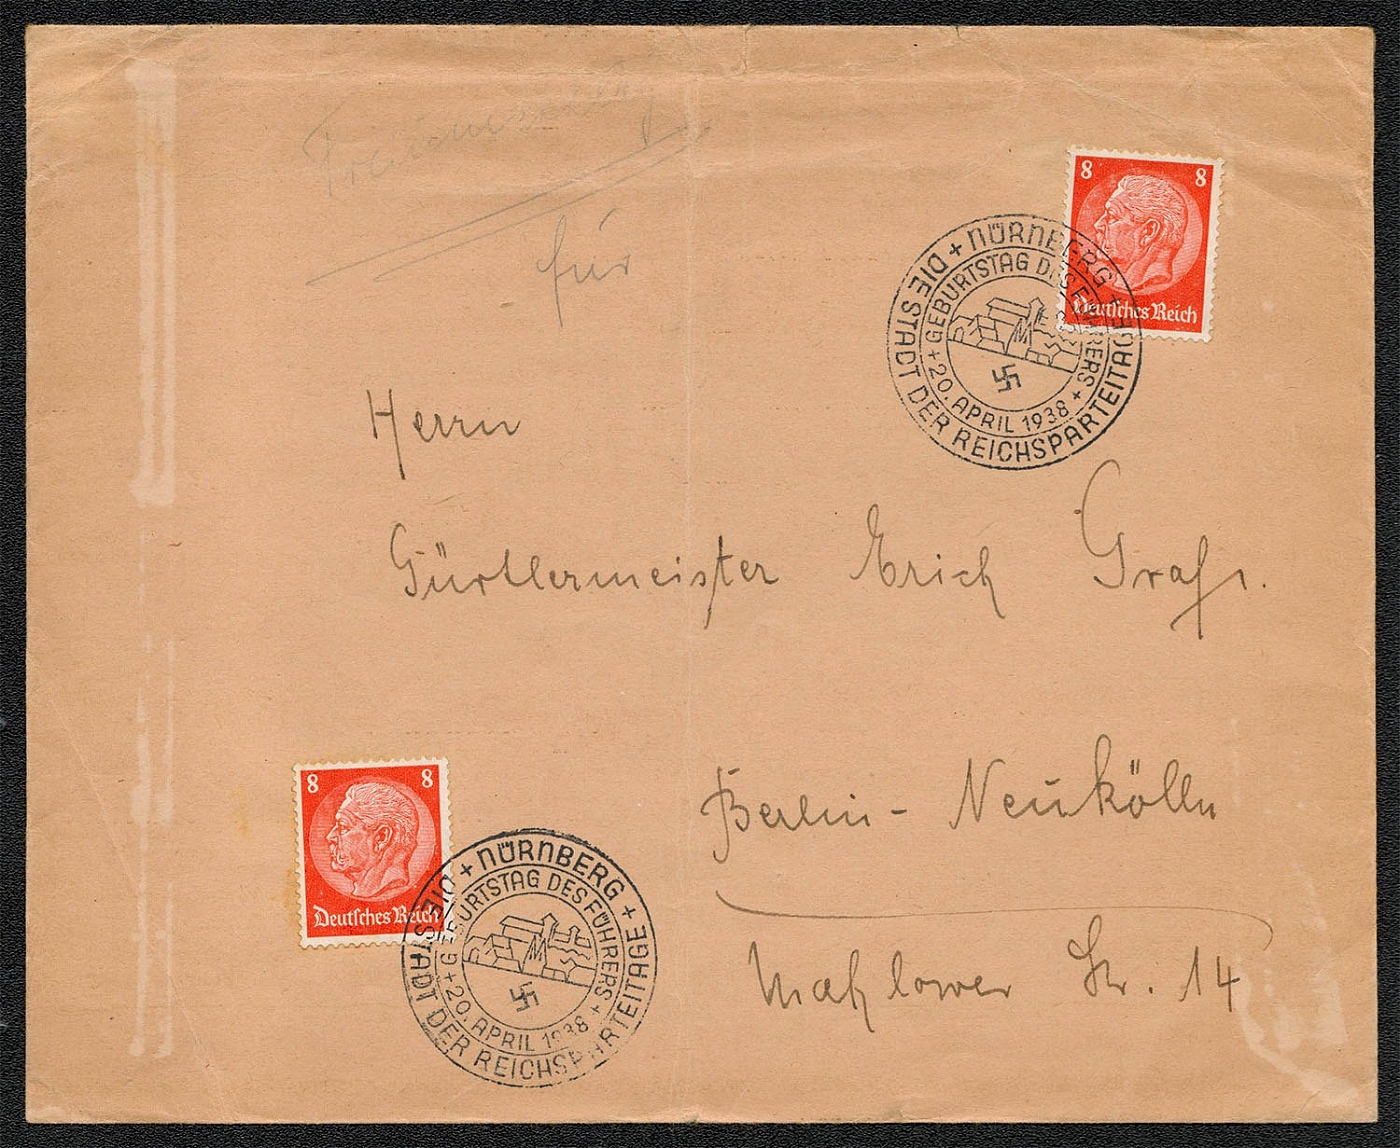 für
8 8
Deutsches Reich
+ NÜRNBERG + DIE STADT DER REICHSPARTEITAGE
GEBURTSTAG DES FÜHRERS + 20. APRIL 1938 +
Herrn
Gürtlermeister Erich Graf
Berlin-Neukölln
Mahlower Str. 14
8 8
Deutsches Reich
+ NÜRNBERG + DIE STADT DER REICHSPARTEITAGE
GEBURTSTAG DES FÜHRERS + 20. APRIL 1938 +